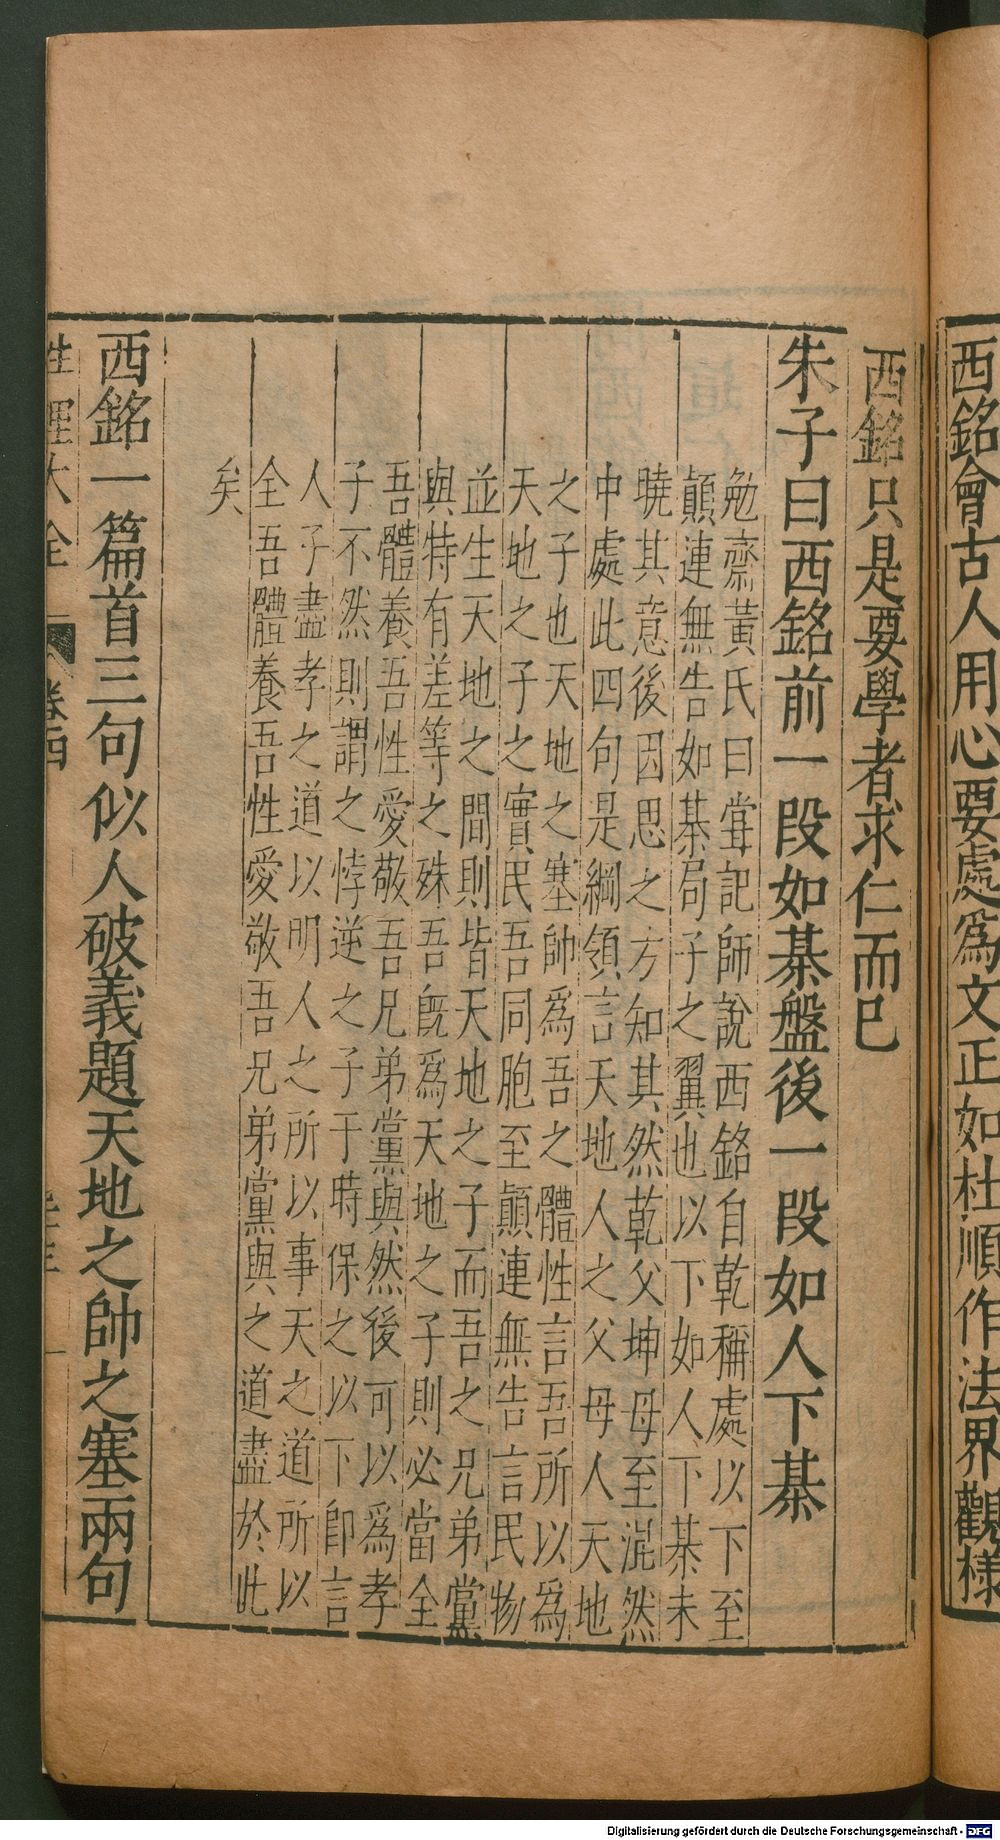 西銘會古人用心要處爲文正如杜順作法界觀樣
西銘只是要學者求仁而已
朱子曰西銘前一段如棊盤後一段如人下棊
勉齋黃氏曰甞記師說西銘自乾稱處以下至
顛連無告如棊局子之翼也以下如人下棊未
曉其意後因思之方知其然乾父坤母至混然
中處此四句是綱領言天地人之父母人天地
之子也天地之塞帥爲吾之體性言吾所以爲
天地之子之實民吾同胞至顛連無告言民物
並生天地之間則皆天地之子而吾之兄弟黨
與特有差等之殊吾既爲天地之子則必當全
吾體養吾性愛敬吾兄弟黨與然後可以爲孝
子不然則謂之悖逆之子于時保之以下卽言
人子盡孝之道以明人之所以事天之道所以
全吾體養吾性愛敬吾兄弟黨與之道盡於此
矣
西銘一篇首三句似人破義題天地之帥之塞兩句
性理大全 卷四
Digitalisierung gefördert durch die Deutsche Forschungsgemeinschaft - DFG